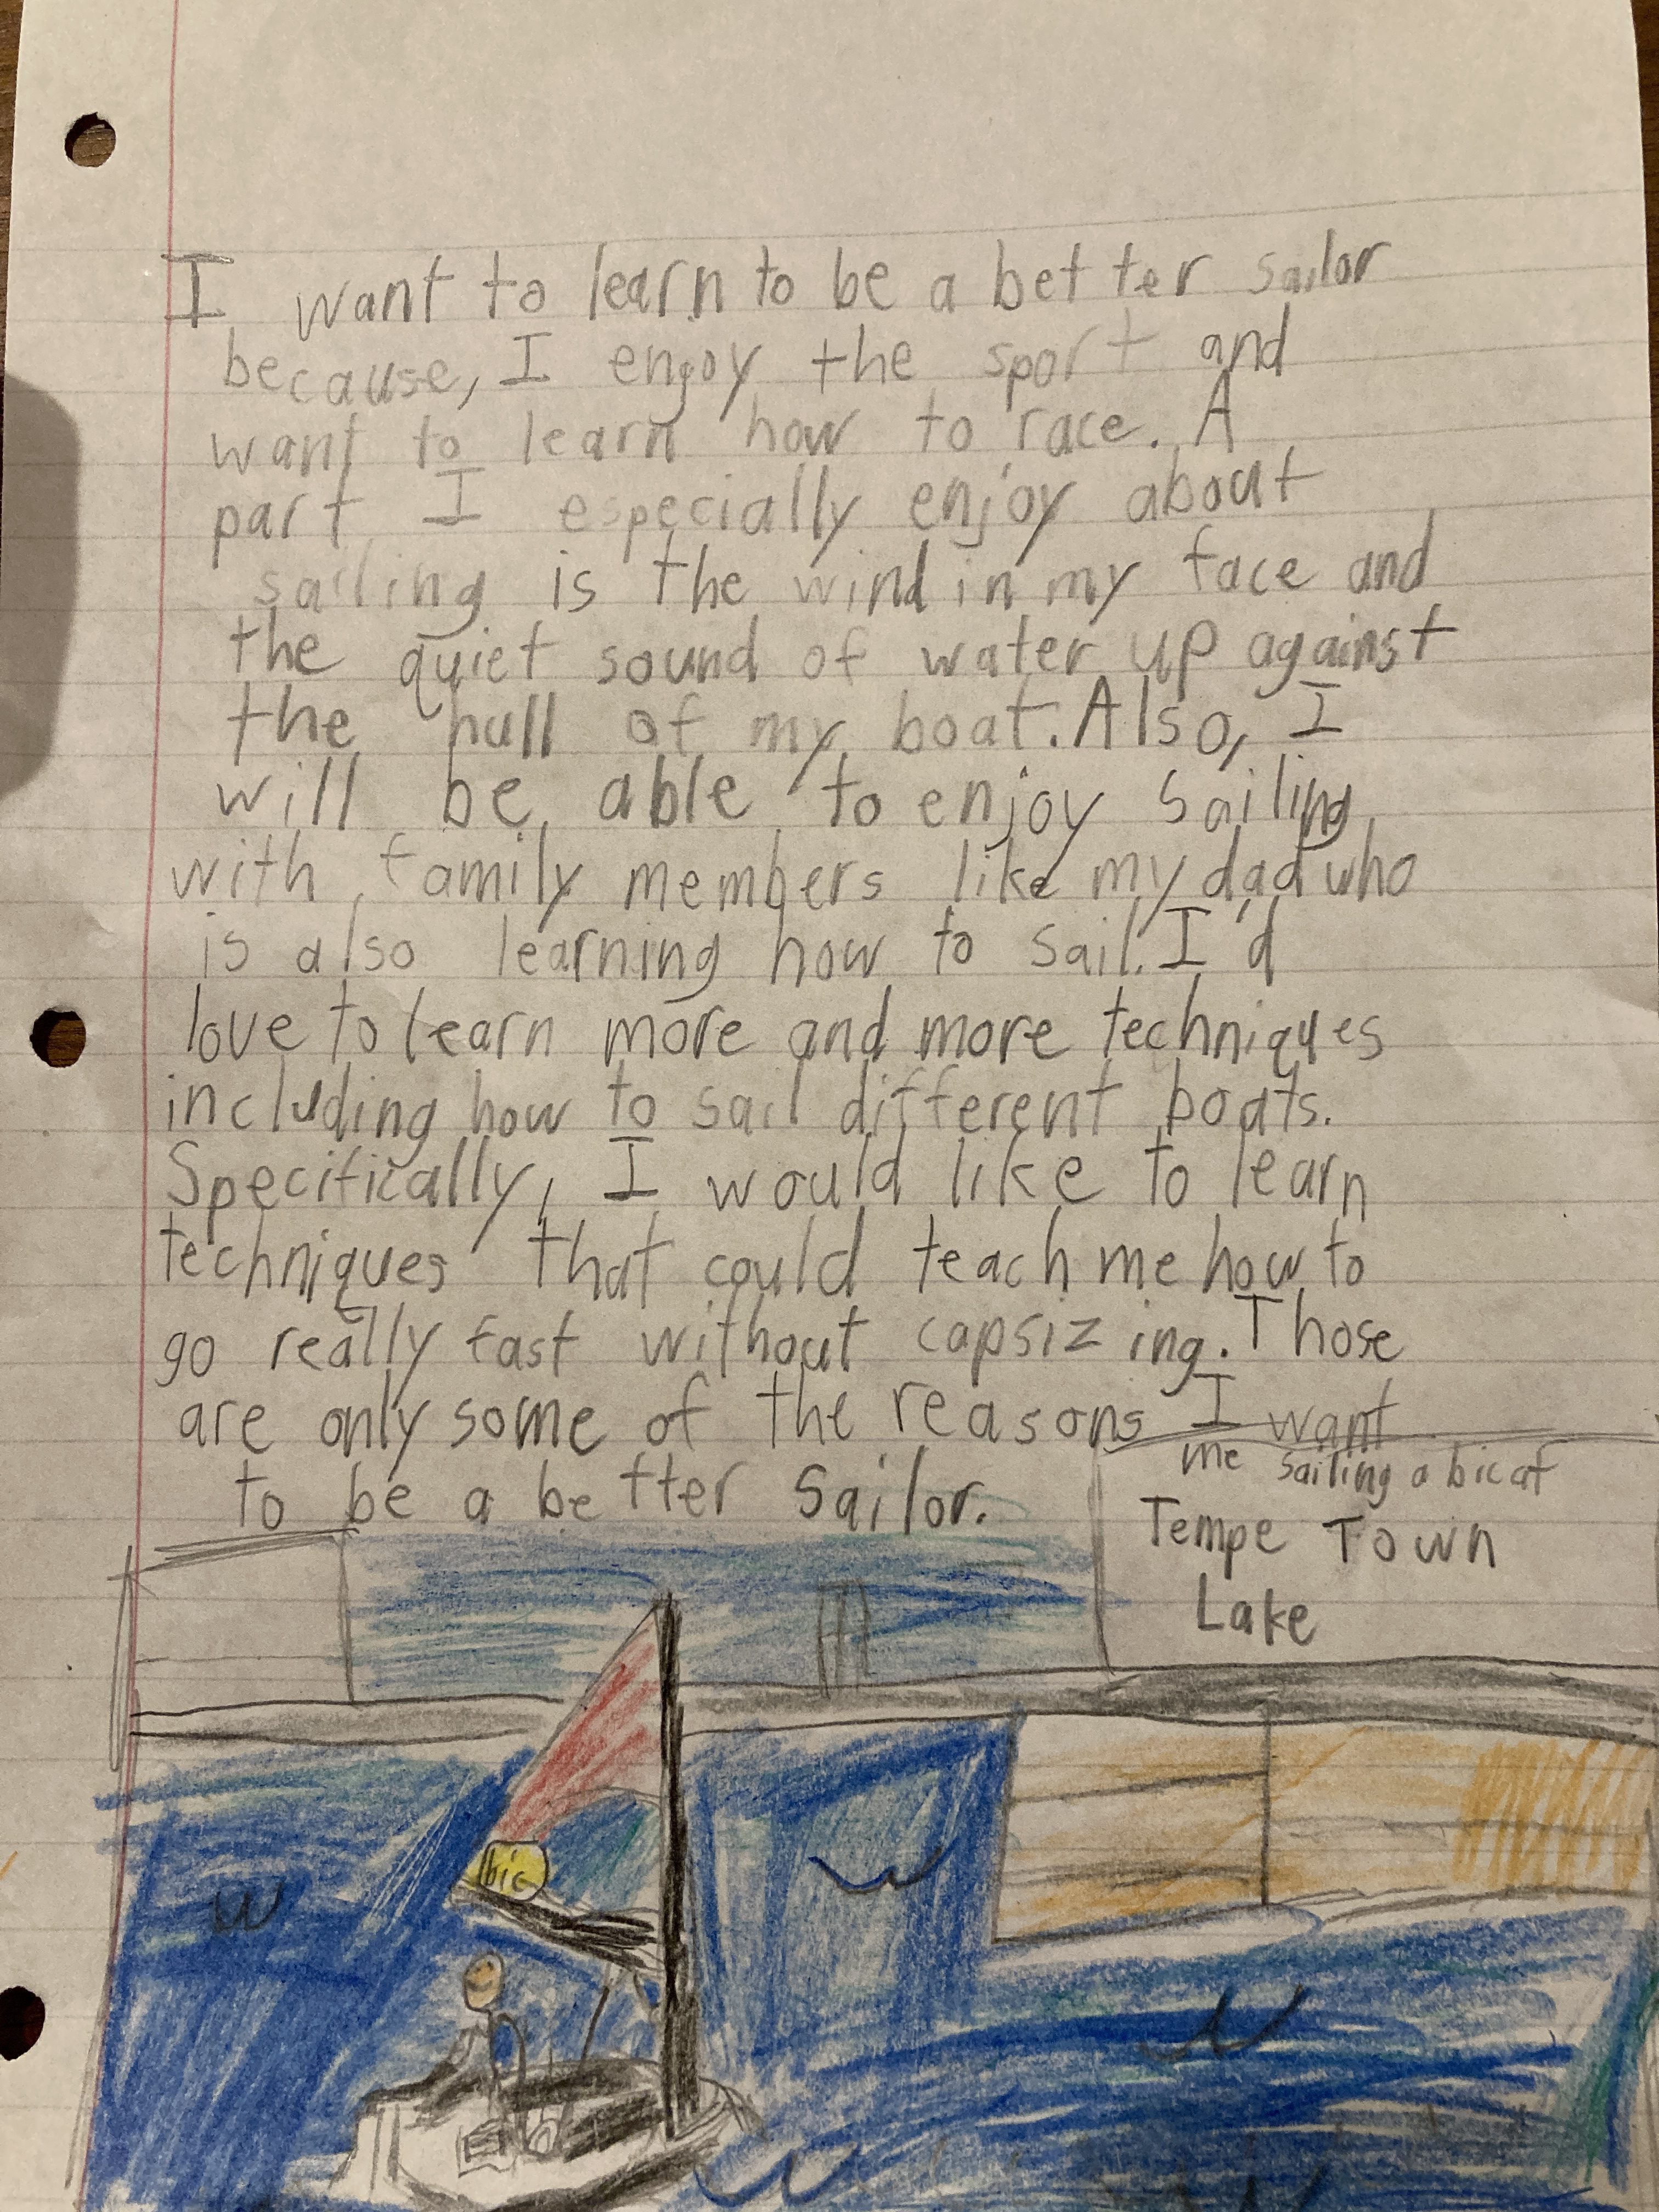 I want to learn to be a better sailor
because, I enjoy the sport and
want to learn how to race. A
part I especially enjoy about
sailing is the wind in my face and
the quiet sound of water up against
the hull of my boat. Also, I
will be able to enjoy sailing
with family members like my dad who
is also learning how to sail. I'd
love to learn more and more techniques
including how to sail different boats.
Specifically, I would like to learn
techniques that could teach me how to
go really fast without capsizing. Those
are only some of the reasons I want
to be a better sailor.
me sailing a bic at
Tempe Town
Lake
bic